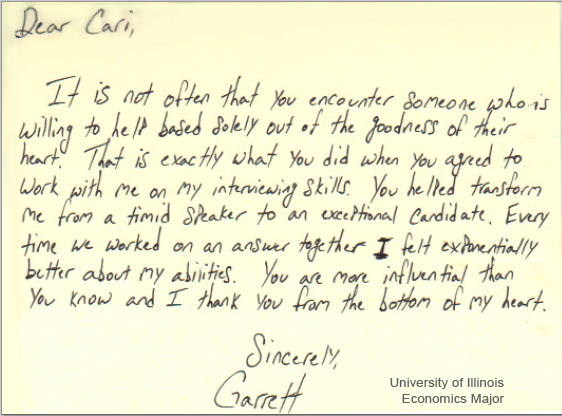 Dear Cari,
It is not often that you encounter someone who is
willing to help based solely out of the goodness of their
heart. That is exactly what you did when you agreed to
work with me on my interviewing skills. You helped transform
me from a timid speaker to an exceptional candidate. Every
time we worked on an answer together I felt exponentially
better about my abilities. You are more influential than
you know and I thank you from the bottom of my heart.
Sincerely,
Garrett
University of Illinois
Economics Major